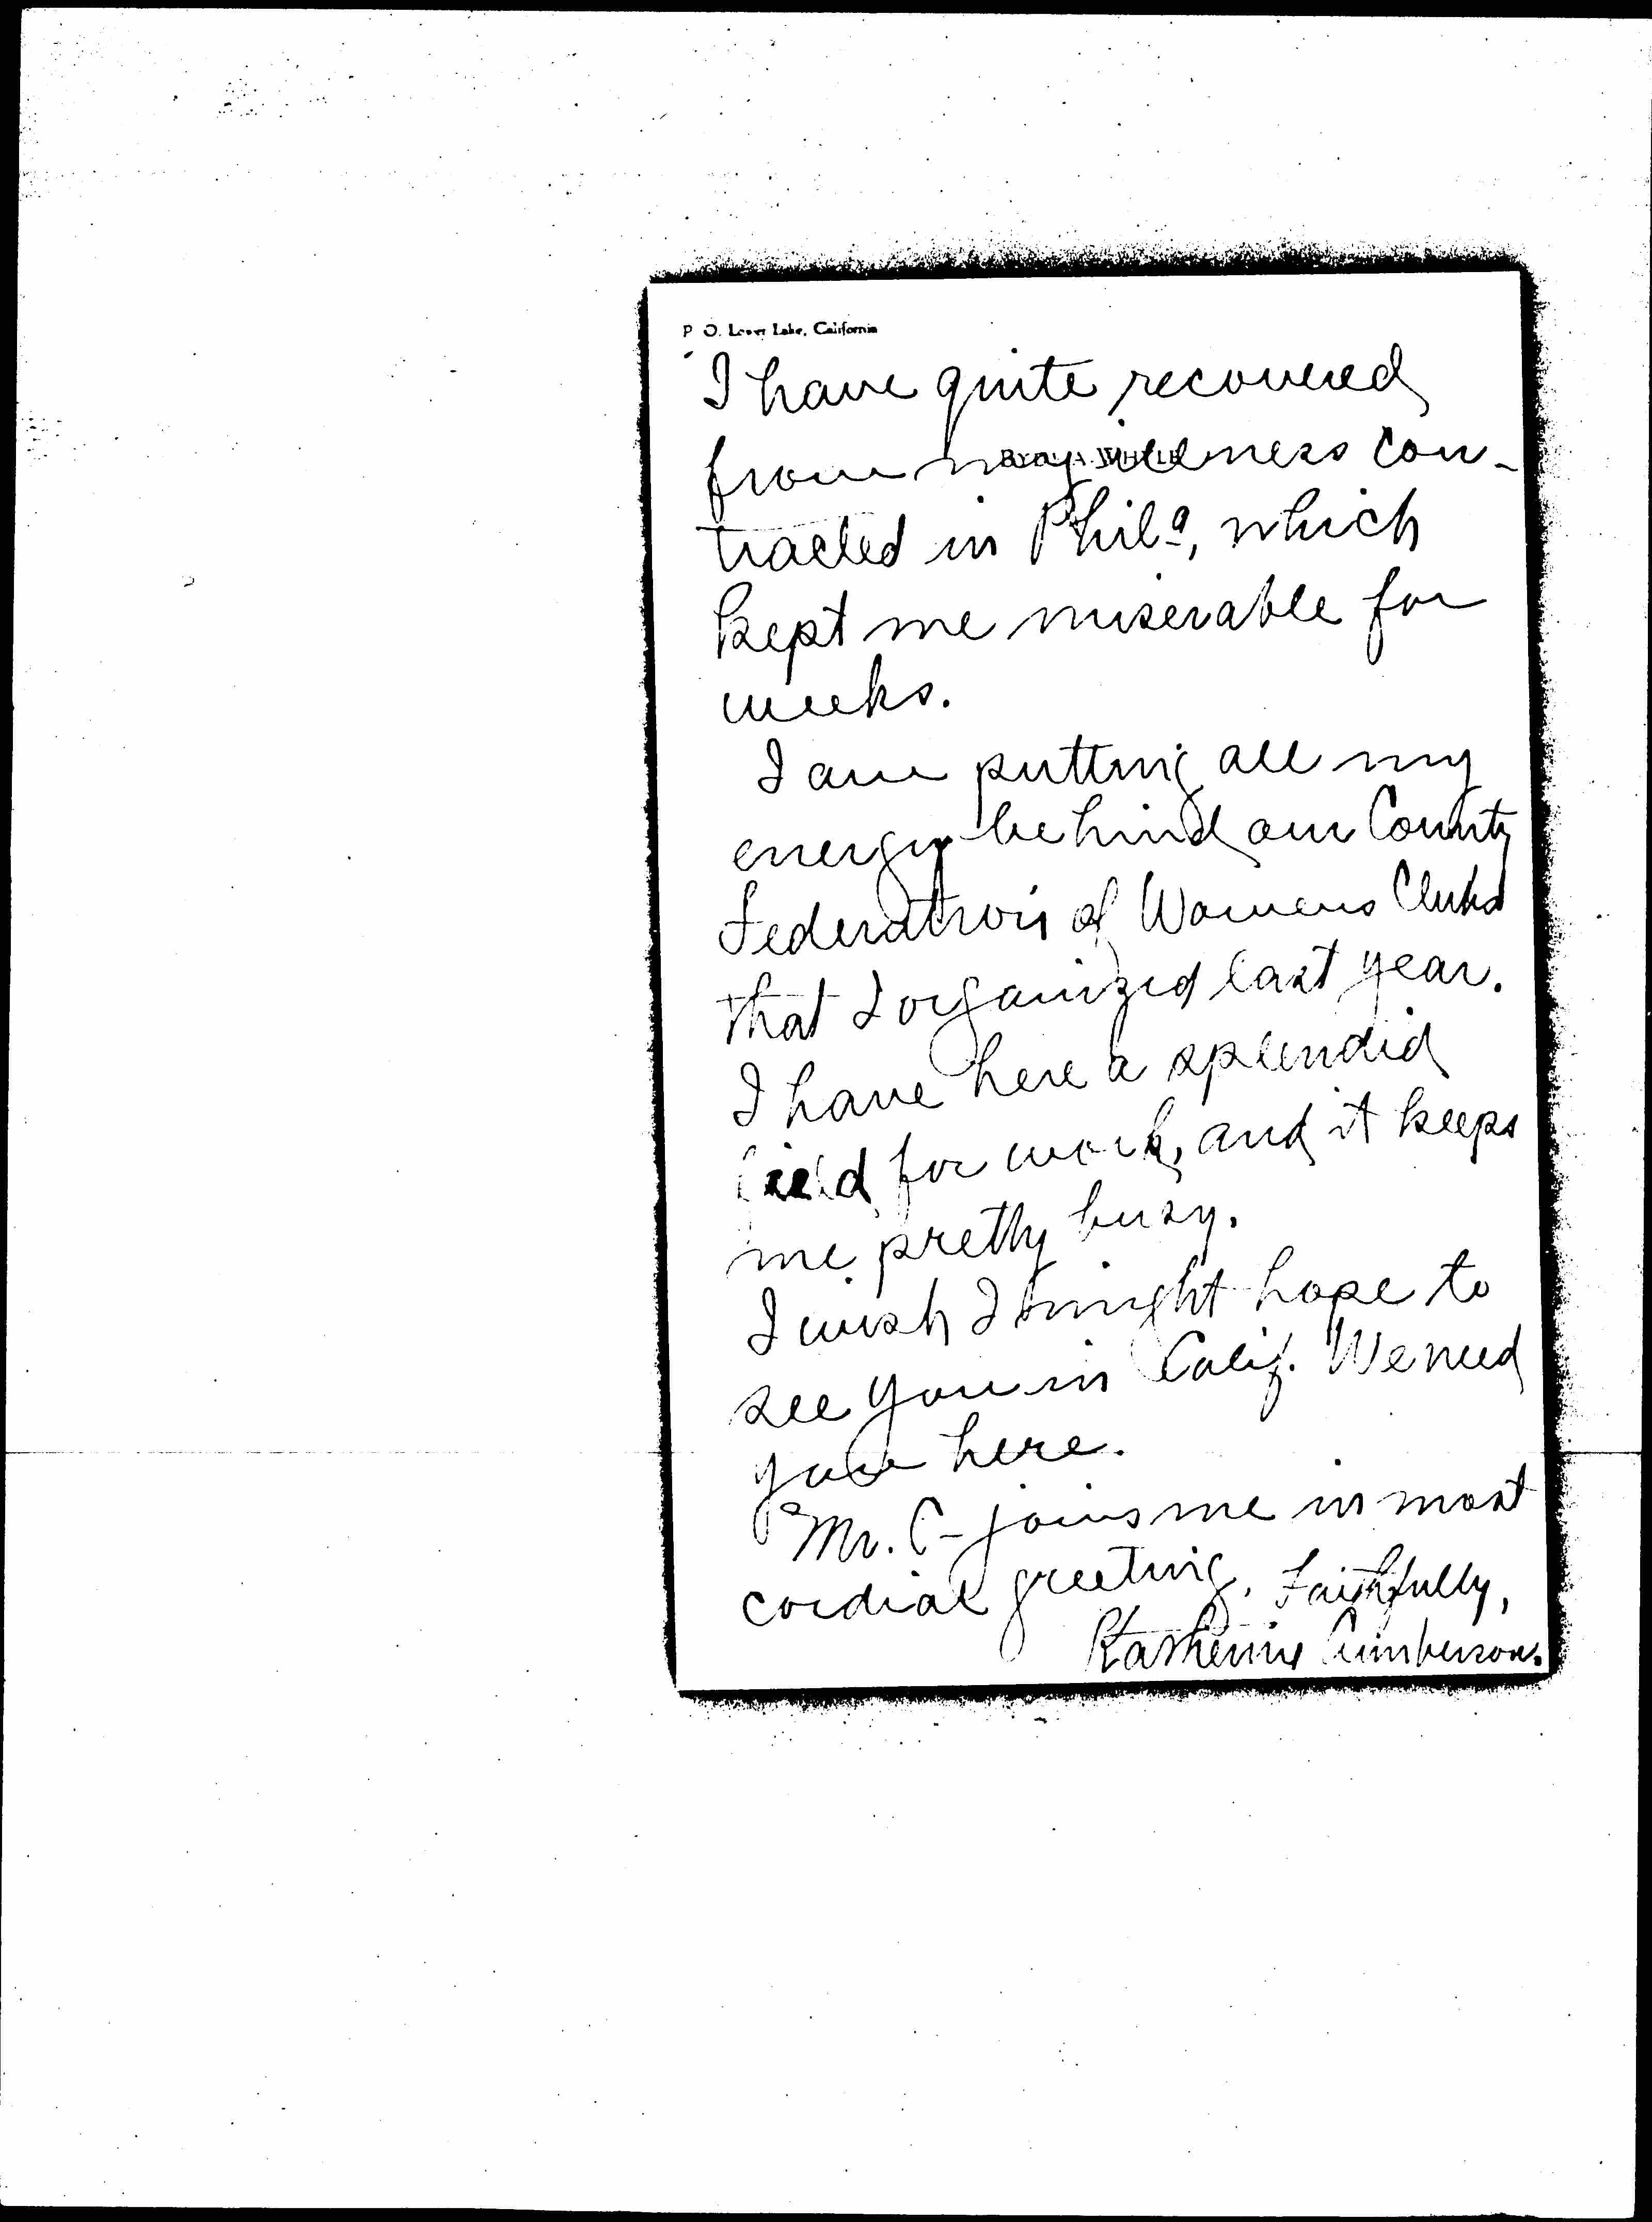 P. O. Lower Lake, California
I have quite recovered
from my illness con-
tracted in Phila, which
kept me miserable for
weeks.
I am putting all my
energy behind our County
Federation of Womens Clubs
that I organized last year.
I have here a splendid
field for work, and it keeps
me pretty busy.
I wish I might hope to
see you in Calif. We need
you here.
Mr. C- joins me in most
cordial greeting. Faithfully,
Katherine